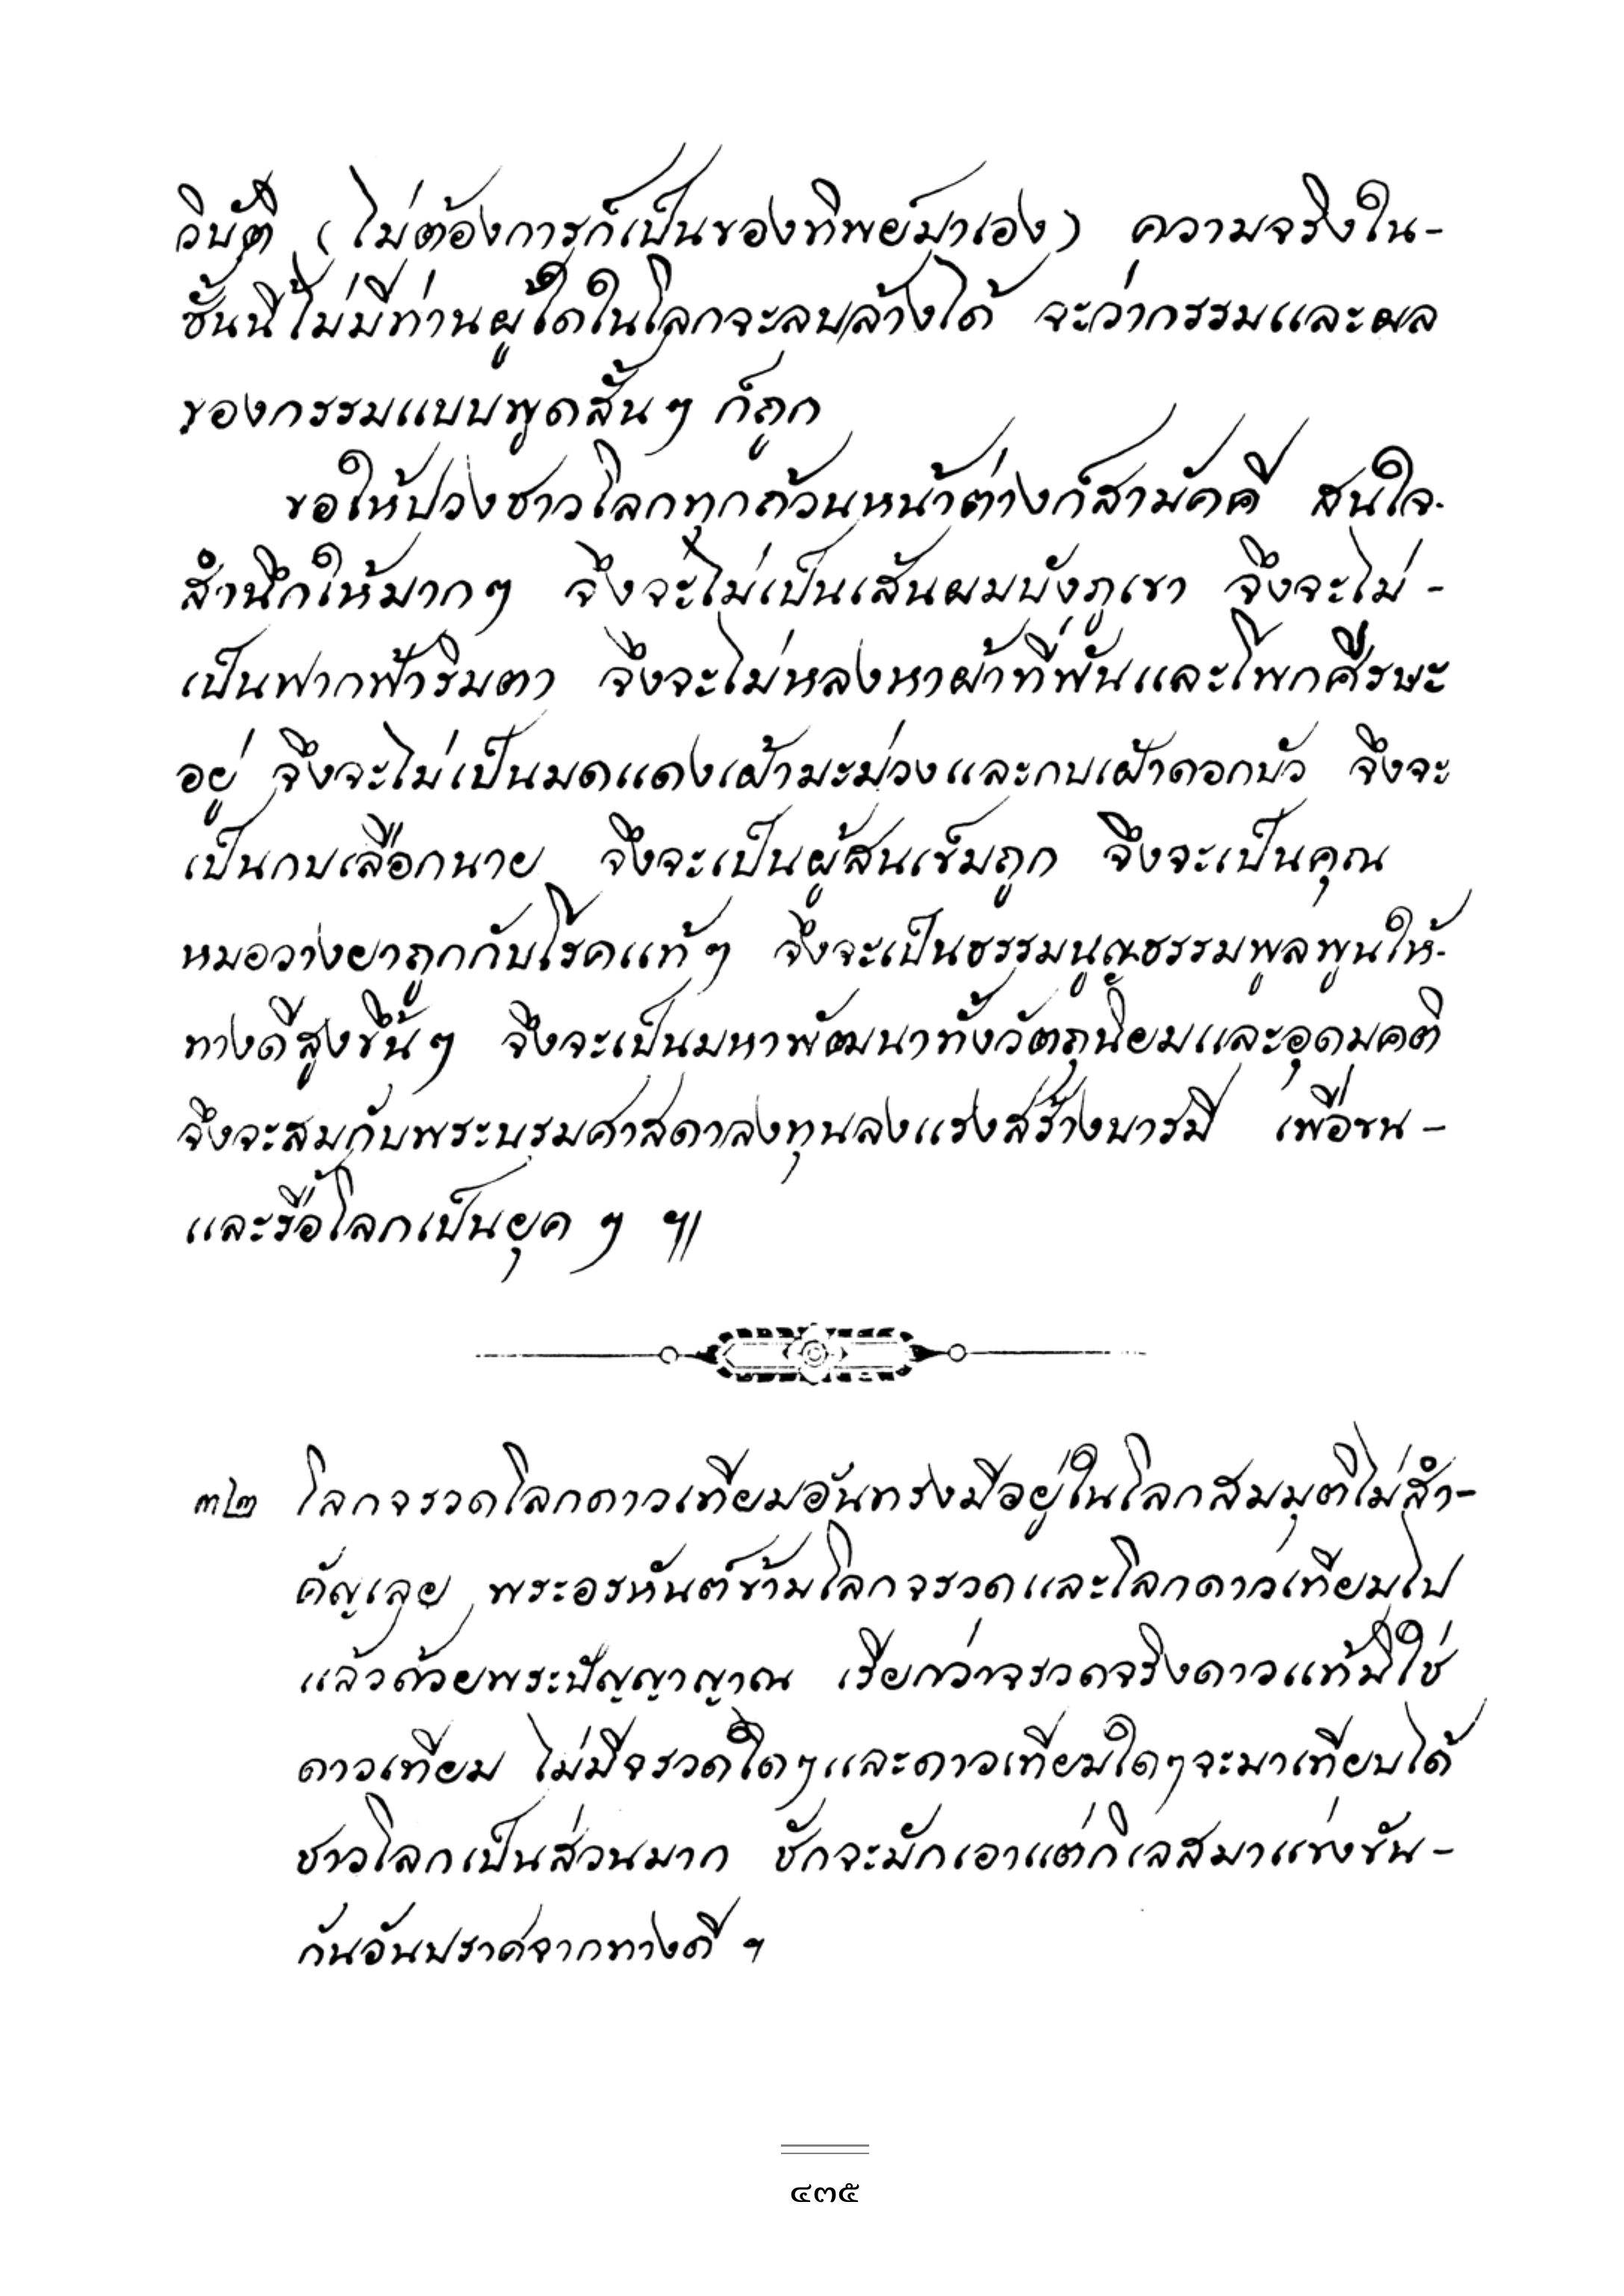 วิบัติ (ไม่ต้องการก็เป็นของทิพย์มาเอง) ความจริงใน-
ชั้นนี้ไม่มีท่านผู้ใดในโลกจะลบล้างได้ จะว่ากรรมและผล
ของกรรมแบบพูดสั้นๆ ก็ถูก
ขอให้ปวงชาวโลกทุกถ้วนหน้าต่างก็สามัคคี สนใจ-
สำนึกให้มากๆ จึงจะไม่เป็นเส้นผมบังภูเขา จึงจะไม่ -
เป็นฟากฟ้าริมตา จึงจะไม่หลงหาผ้าที่พันและโพกศีรษะ
อยู่ จึงจะไม่เป็นมดแดงเฝ้ามะม่วงและกบเฝ้าดอกบัว จึงจะ
เป็นกบเลือกนาย จึงจะเป็นผู้สนเข็มถูก จึงจะเป็นคุณ
หมอวางยาถูกกับโรคแท้ๆ จึงจะเป็นธรรมนูญธรรมพูลพูนให้-
ทางดีสูงขึ้นๆ จึงจะเป็นมหาพัฒนาทั้งวัตถุนิยมและอุดมคติ
จึงจะสมกับพระบรมศาสดาลงทุนลงแรงสร้างบารมี เพื่อขน -
และรื้อโลกเป็นยุค ๆ ฯ|
๓๒ โลกจรวดโลกดาวเทียมอันทรงมีอยู่ในโลกสมมุติไม่สำ-
คัญเลย พระอรหันต์ข้ามโลกจรวดและโลกดาวเทียมไป
แล้วด้วยพระปัญญาญาณ เรียกว่าจรวดจริงดาวแท้มิใช่
ดาวเทียม ไม่มีจรวดใดๆและดาวเทียมใดๆจะมาเทียบได้
ชาวโลกเป็นส่วนมาก ชักจะมักเอาแต่กิเลสมาแข่งขัน -
กันอันปราศจากทางดี ฯ
๔๓๕